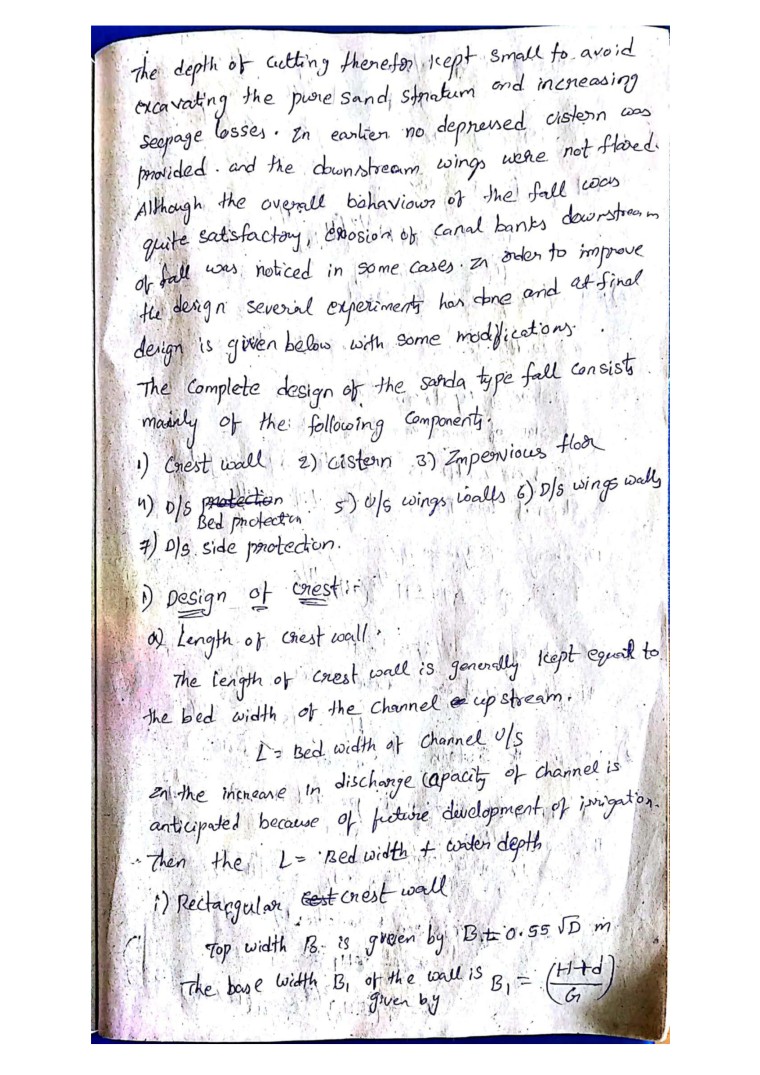 The depth of cutting therefor kept small to avoid
excavating the pure sand stratum and increasing
seepage losses. In earlier no depressed cistern was
provided. and the downstream wings were not flared.
Although the overall bahaviour of the fall was
quite satisfactory, erosion of canal banks downstream
of fall was noticed in some cases. In order to improve
the design several experiments has done and at final
design is given below with some modifications.
The complete design of the sarda type fall consists
mainly of the following components.
1) Crest wall 2) cistern 3) Impervious floor
4) D/S protection 5) U/S wings walls 6) D/S wings walls
Bed protection
7) D/S side protection.
1) Design of crest :-
a) Length of crest wall.
The length of crest wall is generally kept equal to
the bed width of the channel upstream.
L = Bed width of channel U/S
In the increase in discharge capacity of channel is
anticipated because of future development of irrigation.
Then the L = Bed width + water depth
i) Rectangular crest wall
Top width B is given by B = 0.55 √D m
The base width B₁ of the wall is given by B₁ = (H+d / G)